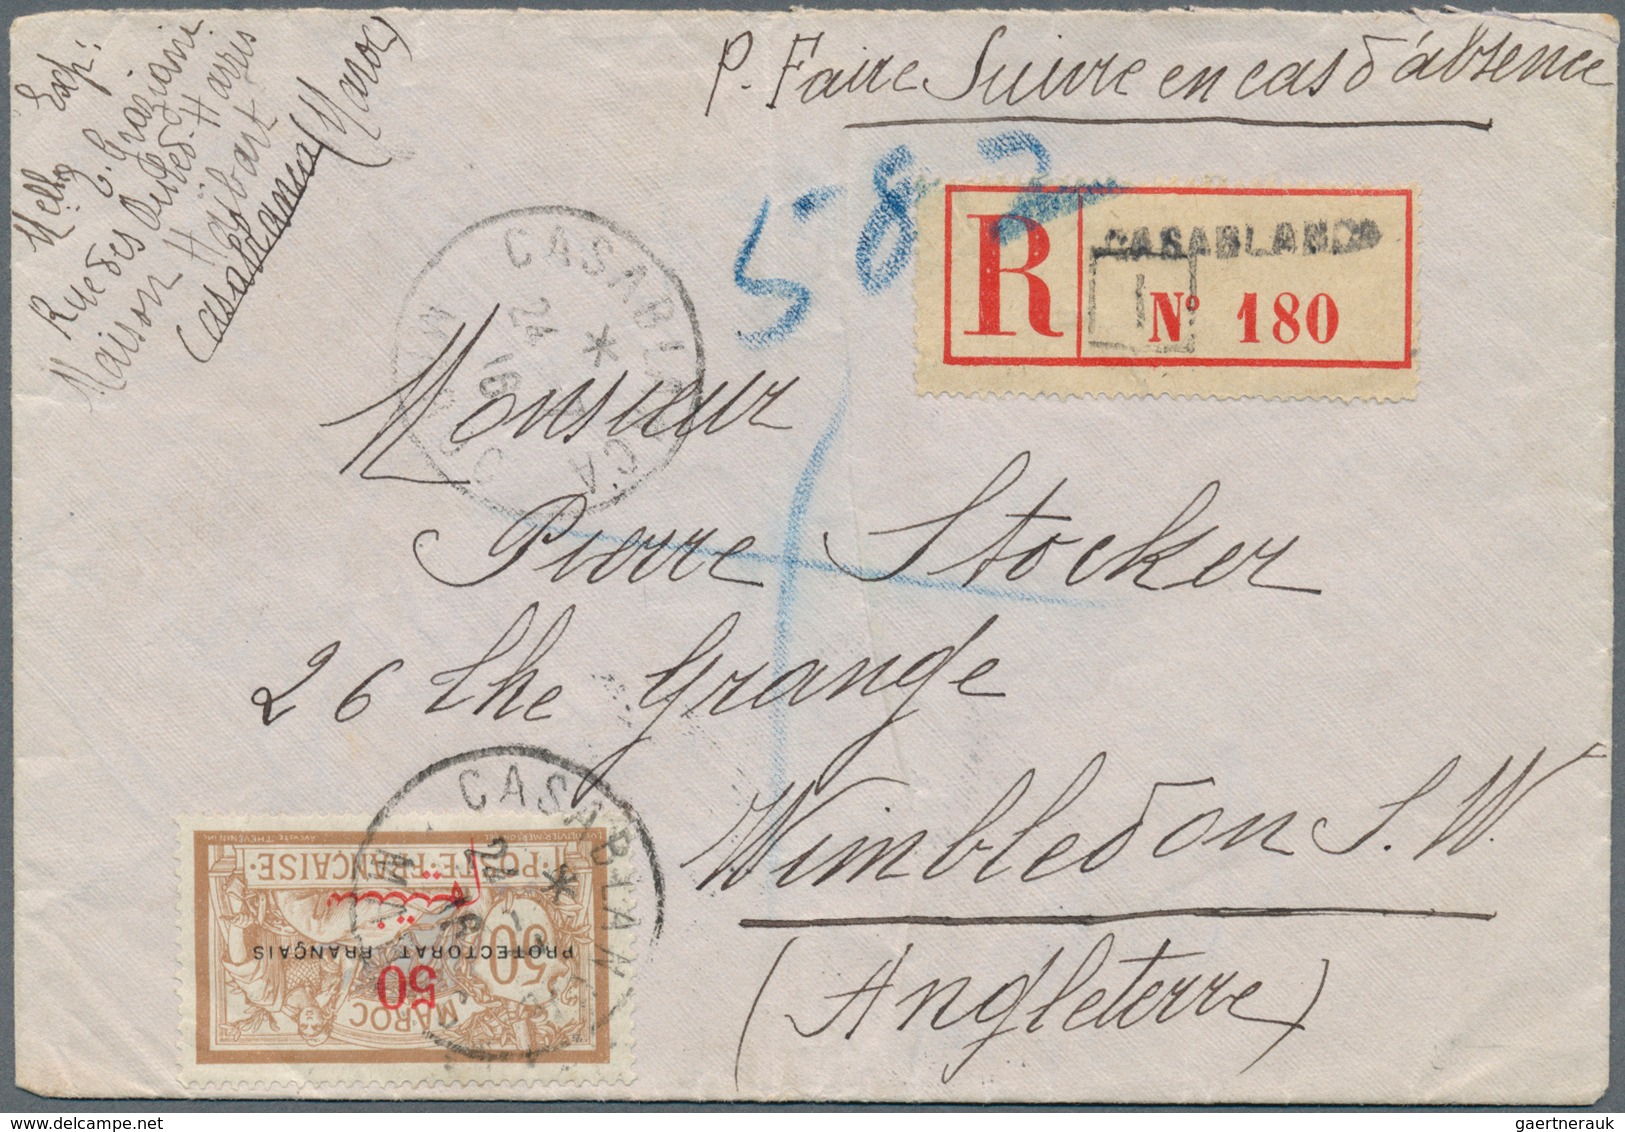 Exp:
Melle E. Graziani
Rue des Oulad-Harris
Maison Hajbart
Casablanca (Maroc)
P. Faire Suivre en cas d'absence
587
R
CASABLANCA
1
Nº 180
CASABLANCA
*
24
16
MAROC
Monsieur
Pierre Stocker
26 the Grange
Wimbledon S.W.
(Angleterre)
CASABLANCA
*
24
16
MAROC
POSTE FRANÇAISE
50
PROTECTORAT FRANÇAIS
50
MAROC
gaertnerauk